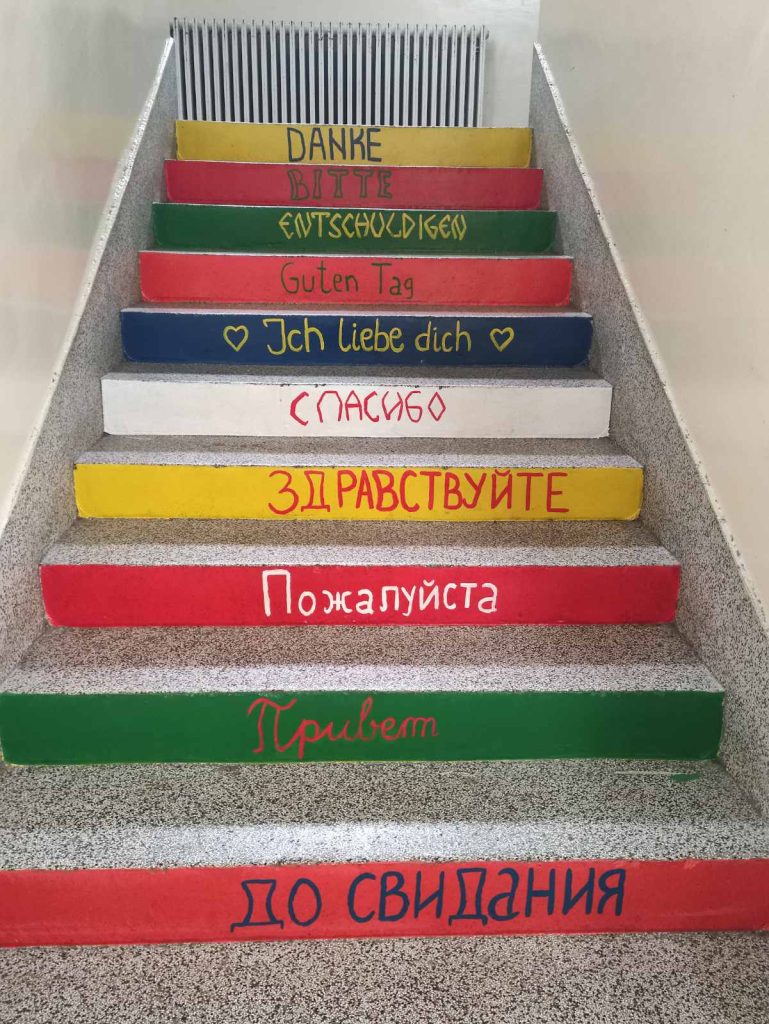 DANKE
BITTE
ENTSCHULDIGEN
Guten Tag
♡ Ich liebe dich ♡
СПАСИБО
ЗДРАВСТВУЙТЕ
Пожалуйста
Привет
ДО СВИДАНИЯ